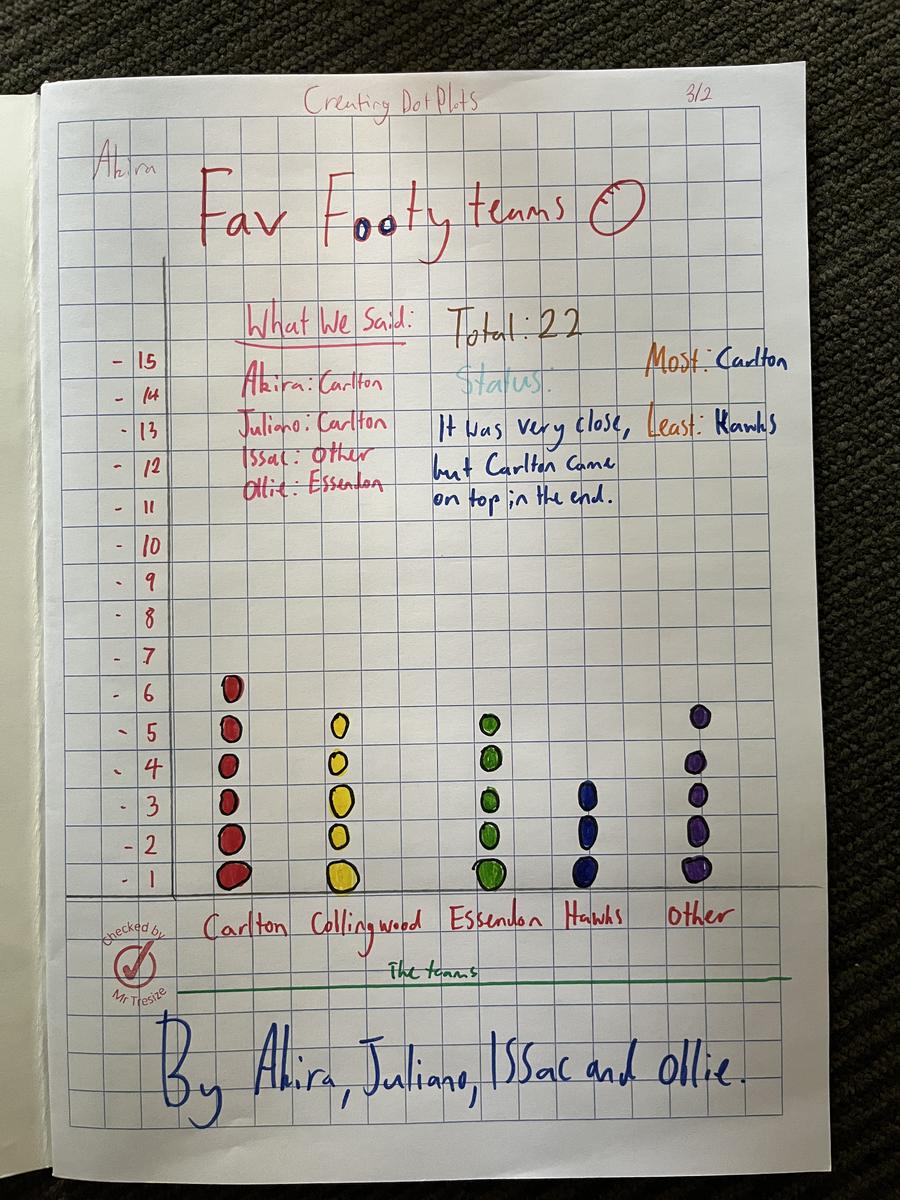 Creating Dot Plots
3/2
Akira
Fav Footy teams
What We Said:
Akira: Carlton
Juliano: Carlton
Issac: Other
Ollie: Essendon
Total: 22
Status:
It was very close,
but Carlton came
on top in the end.
Most: Carlton
Least: Hawks
- 15
- 14
- 13
- 12
- 11
- 10
- 9
- 8
- 7
- 6
- 5
- 4
- 3
- 2
- 1
Carlton Collingwood Essendon Hawks Other
The teams
Checked by
Mr Tresize
By Akira, Juliano, Issac and Ollie.